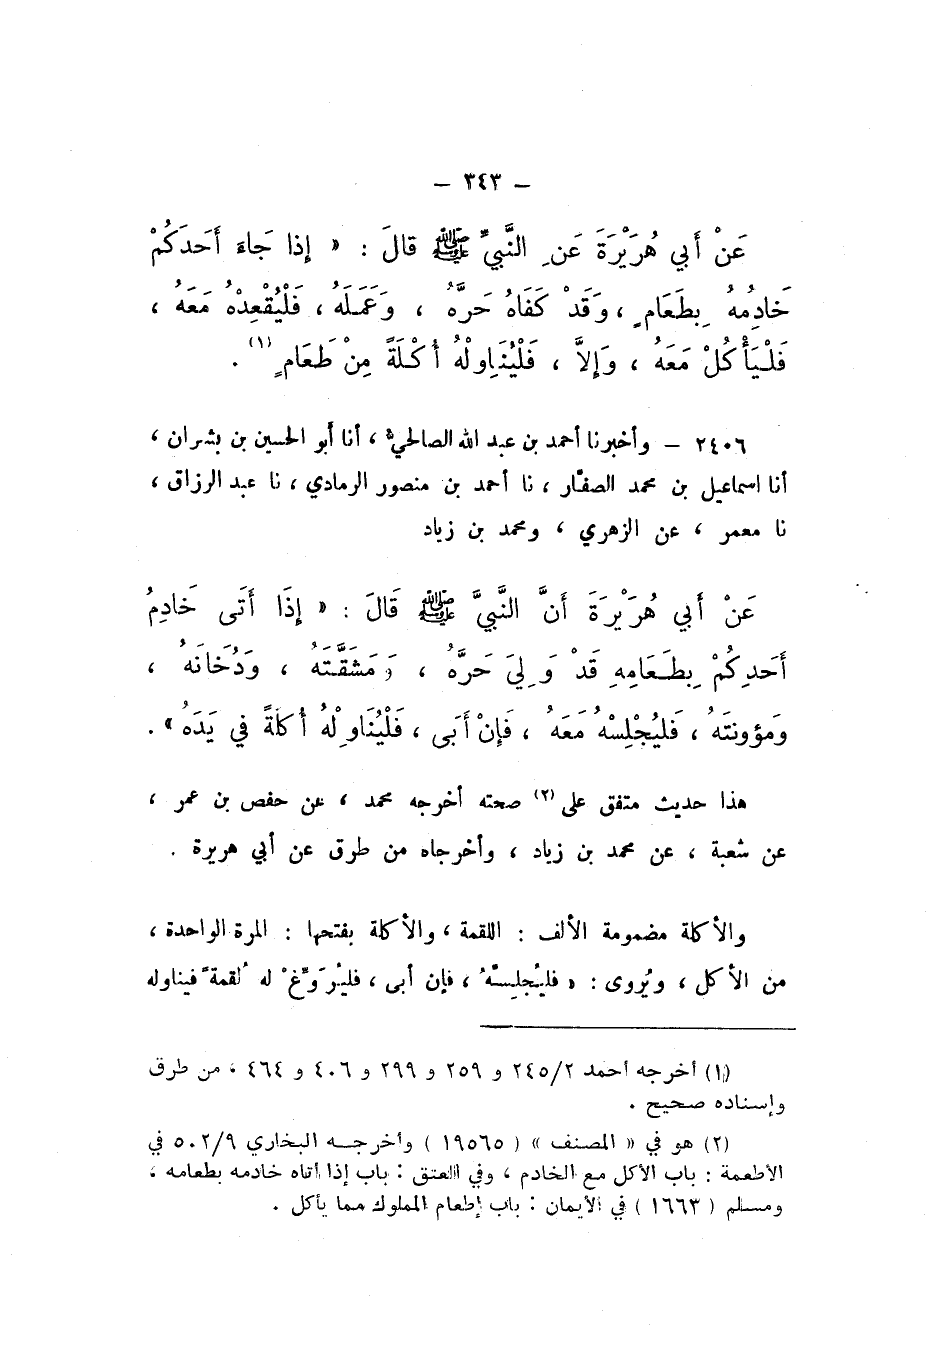 – ٣٤٣ –
عَنْ أَبي هُرَيْرَةَ عَنِ النَّبيِّ ﷺ قالَ : « إِذا جَاءَ أَحَدَكُمْ
خَادِمُهُ بِطَعَامٍ ، وَقَدْ كَفَاهُ حَرَّهُ ، وَعَمَلَهُ ، فَلْيُقْعِدْهُ مَعَهُ ،
فَلْيَأْكُلْ مَعَهُ ، وَإِلاَّ ، فَلْيُنَاوِلْهُ أُكْلَةً مِنْ طَعَامٍ (١) .
٢٤٠٦ – وأخبرنا أحمد بن عبد الله الصالحيّ ، أنا أَبو الحسين بن بشران ،
أنا اسماعيل بن محمد الصفّار ، نا أحمد بن منصور الرمادي ، نا عبد الرزاق ،
نا معمر ، عن الزهري ، ومحمد بن زياد
عَنْ أَبي هُرَيْرَةَ أَنَّ النَّبيَّ ﷺ قَالَ : « إِذَا أَتَى خَادِمُ
أَحَدِكُمْ بِطَعَامِهِ قَدْ وَلِيَ حَرَّهُ ، وَمَشَقَّتَهُ ، وَدُخَانَهُ ،
وَمؤونتَهُ ، فَليُجْلِسْهُ مَعَهُ ، فَإِنْ أَبَى ، فَلْيُنَاوِلْهُ أُكلَةً في يَدَهُ » .
هذا حديث متفق على (٢) صحته أخرجه محمد ، عن حفص بن عمر ،
عن شعبة ، عن محمد بن زياد ، وأخرجاه من طرق عن أبي هريرة .
والأكلة مضمومة الألف : اللقمة ، والأكلة بفتحها : المرة الواحدة ،
من الأكل ، ويُروى : « فليُجلِسْهُ ، فإن أبى ، فليُرَوِّغْ له لُقمةً فيناوله
(١) أخرجه أحمد ٢٤٥/٢ و ٢٥٩ و ٢٩٩ و ٤٠٦ و ٤٦٤ ، من طرق
وإسناده صحيح .
(٢) هو في « المصنف » ( ١٩٥٦٥ ) وأخرجه البخاري ٥٠٢/٩ في
الأطعمة : باب الأكل مع الخادم ، وفي العتق : باب إذا أتاه خادمه بطعامه ،
ومسلم ( ١٦٦٣ ) في الأيمان : باب إطعام المملوك مما يأكل .